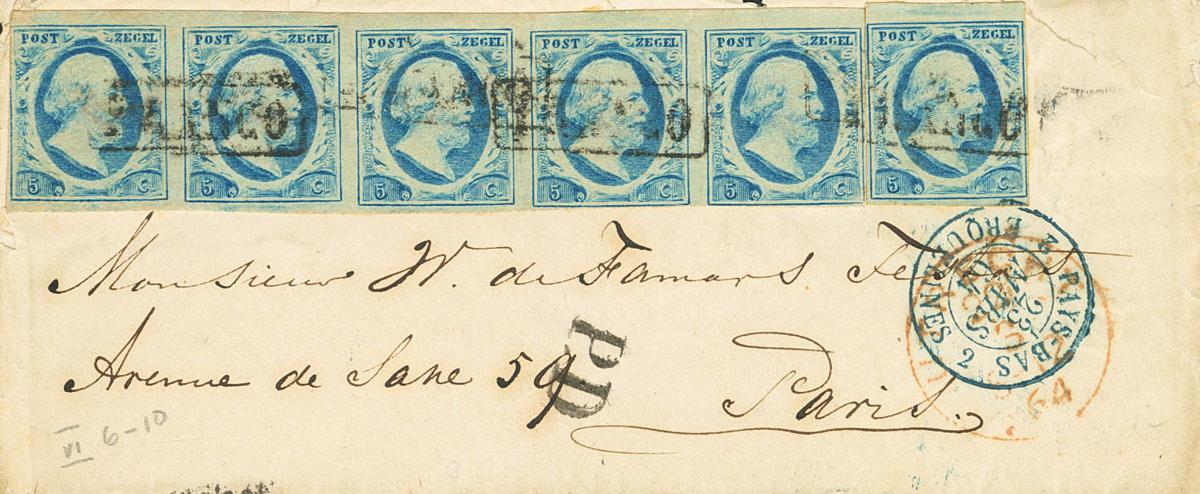 POST ZEGEL POST ZEGEL POST ZEGEL POST ZEGEL POST ZEGEL POST ZEGEL
FRANCO
5 C. 5 C. 5 C. 5 C. 5 C. 5 C.
Monsieur W. de Famars Testas
Avenue de Saxe 59
Paris.
PD
2 PAYS-BAS 2
MARS
23
64
VI 6-10